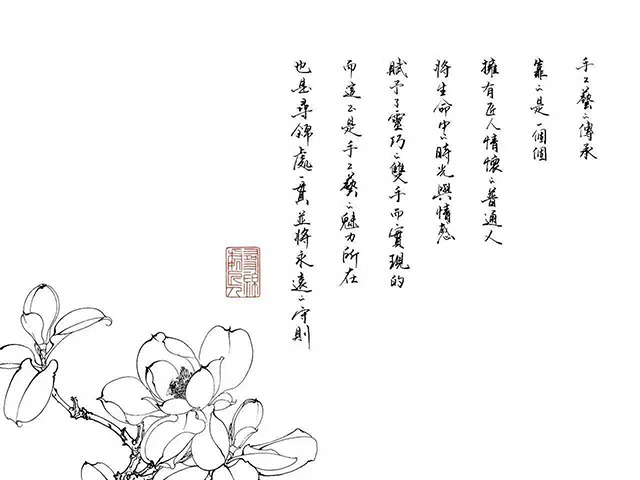 手工藝之傳承
靠之是一個個
擁有匠人情懷之普通人
將生命中之時光與情感
賦予了靈巧之雙手而實現的
而這正是手工藝之魅力所在
也是尋錦處一貫並將永遠之守則